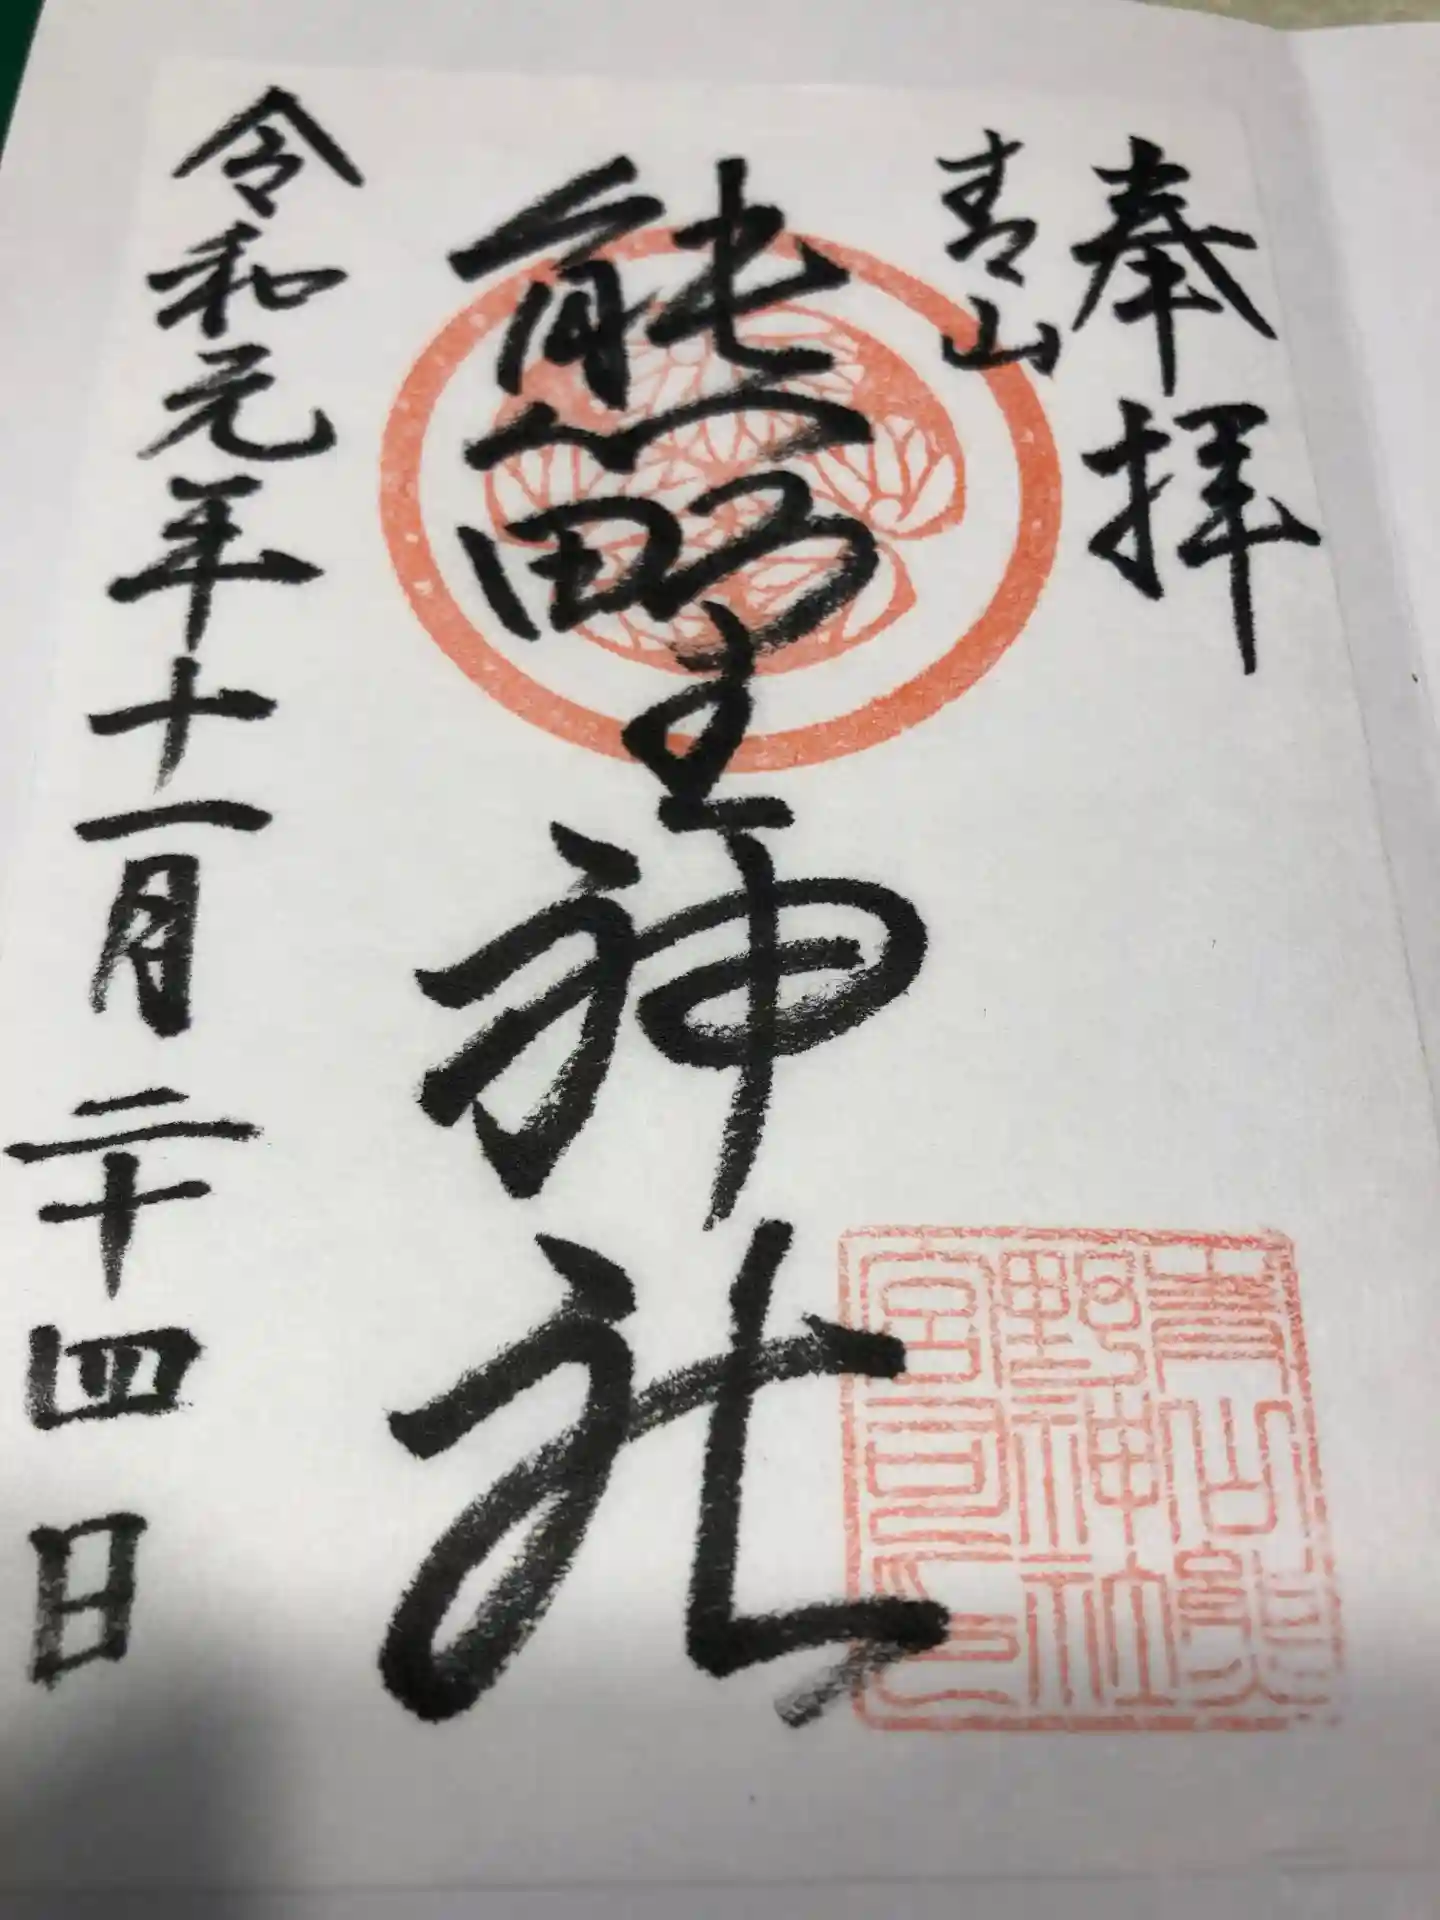 奉拝
青山
熊野神社
令和元年十一月二十四日
青山熊
野神社
宮司印